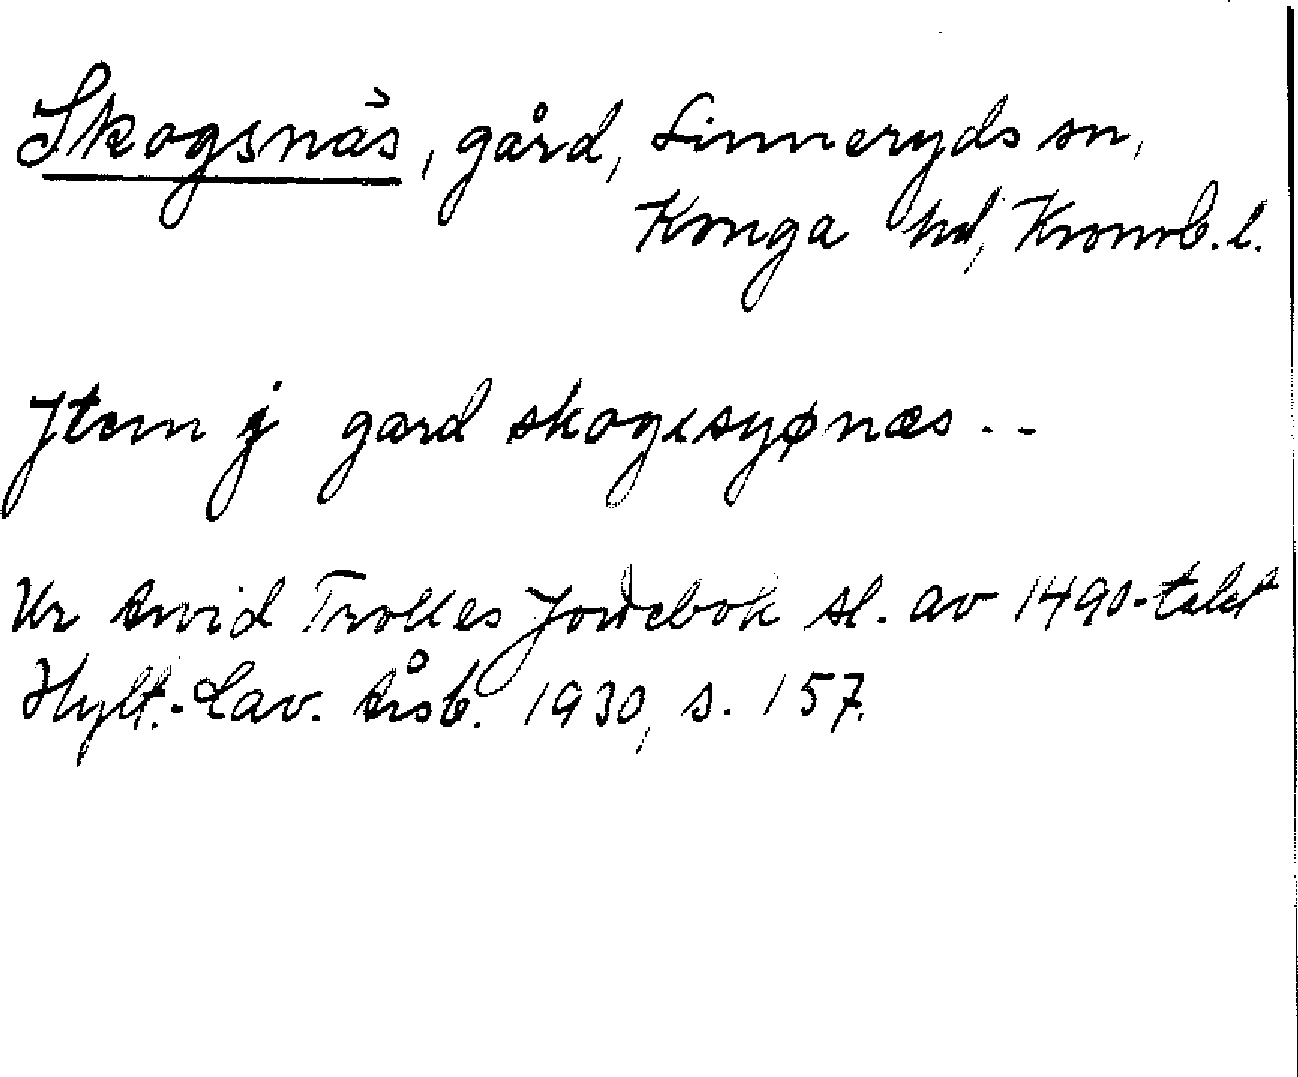 Skogsnäs, gård, Linneryds sn,
Konga hd, Kronob. l.
Jtem j gard skogesyønæs - -
Ur Arvid Trolles Jordebok sl. av 1490-talet
Hylt.-Cav. Årsb. 1930, s. 157.